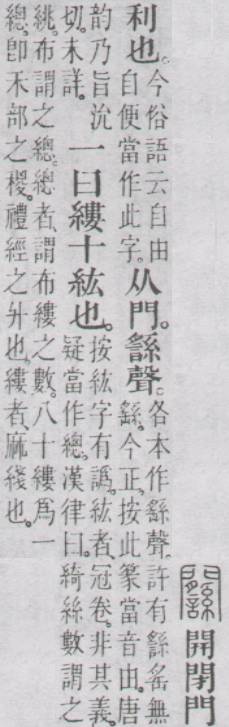 開閉門
利也。今俗語云自由
自便當作此字。从門。䌛聲。各本作繇聲。許有䌛䍃無
繇。今正。按此篆當音由。唐
韵乃旨沇
切。未詳。一曰縷十紘也。按紘字有譌。紘者冠卷。非其義。
疑當作總。漢律曰。綺絲數謂之
絩。布謂之總。總者謂布縷之數。八十縷爲一
總。卽禾部之稯。禮經之升也。縷者。麻綫也。